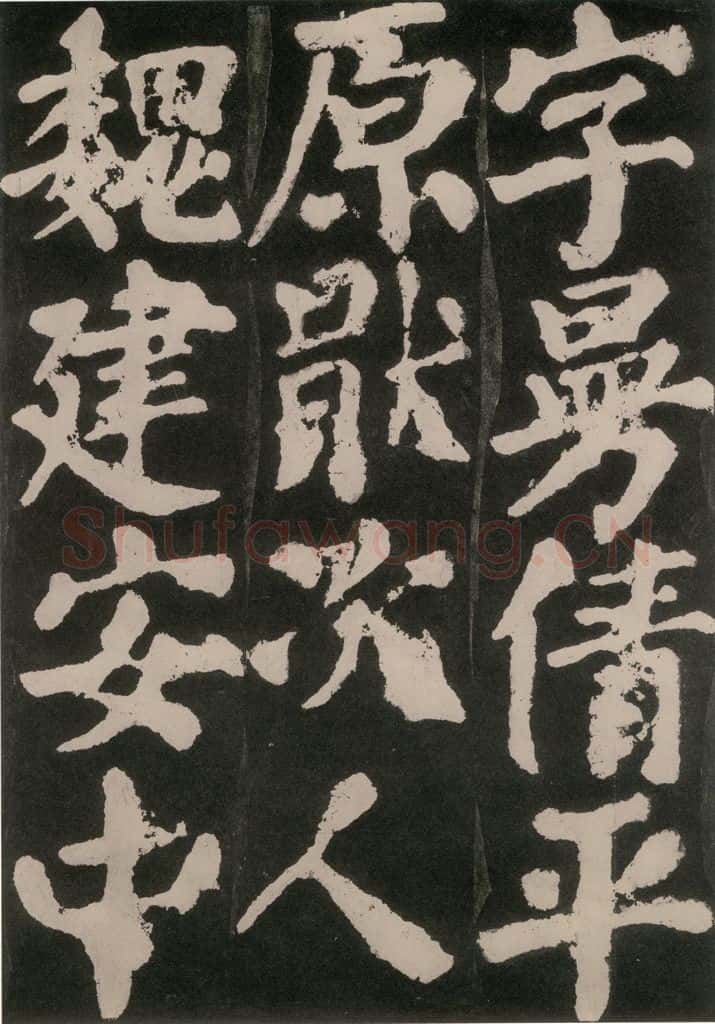 字曼倩平
原猒次人
魏建安中
Shufawang.CN